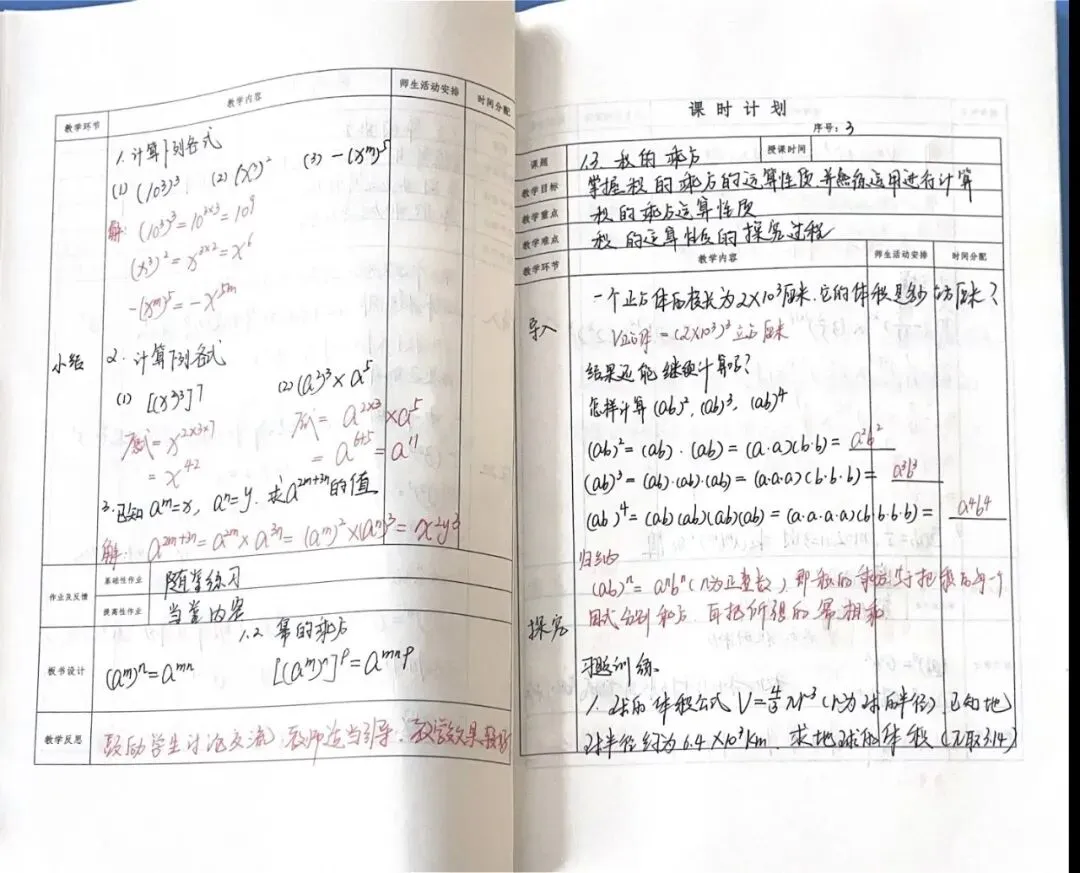 教学环节 教学内容 师生活动安排 时间分配
1.计算下列各式
(1) (10³)³ (2) (x³)² (3) -(xᵐ)⁵
解: (10³)³=10³ˣ³=10⁹
(x³)²=x³ˣ²=x⁶
-(xᵐ)⁵=-x⁵ᵐ
小结
2.计算下列各式
(1) [(x²)³]⁷ (2) (a²)³×a⁵
原式=x²ˣ³ˣ⁷ 原式=a²ˣ³×a⁵
=x⁴² =a⁶⁺⁵=a¹¹
3.已知aᵐ=x, aⁿ=y.求a²ᵐ⁺³ⁿ的值
解: a²ᵐ⁺³ⁿ=a²ᵐ×a³ⁿ=(aᵐ)²×(aⁿ)³=x²y³
作业及反馈 基础性作业 随堂练习
提高性作业 当堂内容
1.2 幂的乘方
板书设计 (aᵐ)ⁿ=aᵐⁿ [(aᵐ)ⁿ]ᵖ=aᵐⁿᵖ
教学反思 鼓励学生讨论交流,教师适当引导,教学效果较好
课时计划
序号: 3
课题 1.3. 积的乘方 授课时间
教学目标 掌握积的乘方的运算性质,并熟练运用进行计算
教学重点 积的乘方运算性质
教学难点 积的运算性质的探究过程
教学环节 教学内容 师生活动安排 时间分配
导入
一个正方体的棱长为2×10³厘米,它的体积是多少立方厘米?
V正方体=(2×10³)³立方厘米
结果还能继续计算吗?
怎样计算(ab)², (ab)³, (ab)⁴
(ab)²=(ab)·(ab)=(a·a)(b·b)=a²b²
(ab)³=(ab)·(ab)·(ab)=(a·a·a)(b·b·b)=a³b³
(ab)⁴=(ab)(ab)(ab)(ab)=(a·a·a·a)(b·b·b·b)=a⁴b⁴
归纳
(ab)ⁿ=aⁿbⁿ(n为正整数),即积的乘方等于把积的每一个
因式分别乘方,再把所得的幂相乘.
探究
习题训练。
1.球的体积公式V=4/3πr³(r为球的半径),已知地
球半径约为6.4×10³km,求地球的体积(π取3.14)